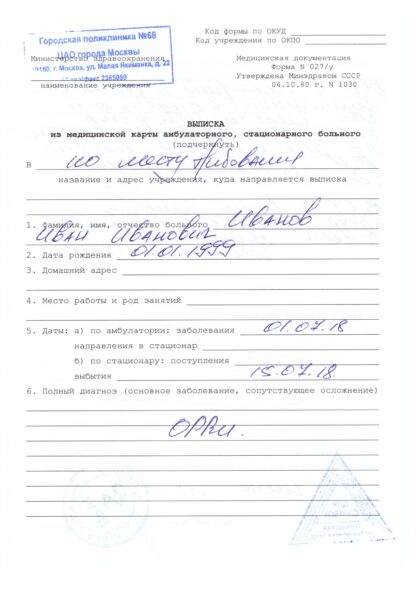 Городская поликлиника №68
ЦАО города Москвы
г. Москва, ул. Малая Якиманка, д. 22
2385069
Код формы по ОКУД
Код учреждения по ОКПО
Министерство здравоохранения
наименование учреждения
Медицинская документация
Форма N 027/у
Утверждена Минздравом СССР
04.10.80 г. N 1030
ВЫПИСКА
из медицинской карты амбулаторного, стационарного больного
(подчеркнуть)
В по месту требования
название и адрес учреждения, куда направляется выписка
1. Фамилия, имя, отчество больного Иванов
Иван Иванович
2. Дата рождения 01.01.1999
3. Домашний адрес
4. Место работы и род занятий
5. Даты: а) по амбулатории: заболевания 01.07.18
направления в стационар
б) по стационару: поступления
выбытия 15.07.18
6. Полный диагноз (основное заболевание, сопутствующее осложнение)
ОРВИ.